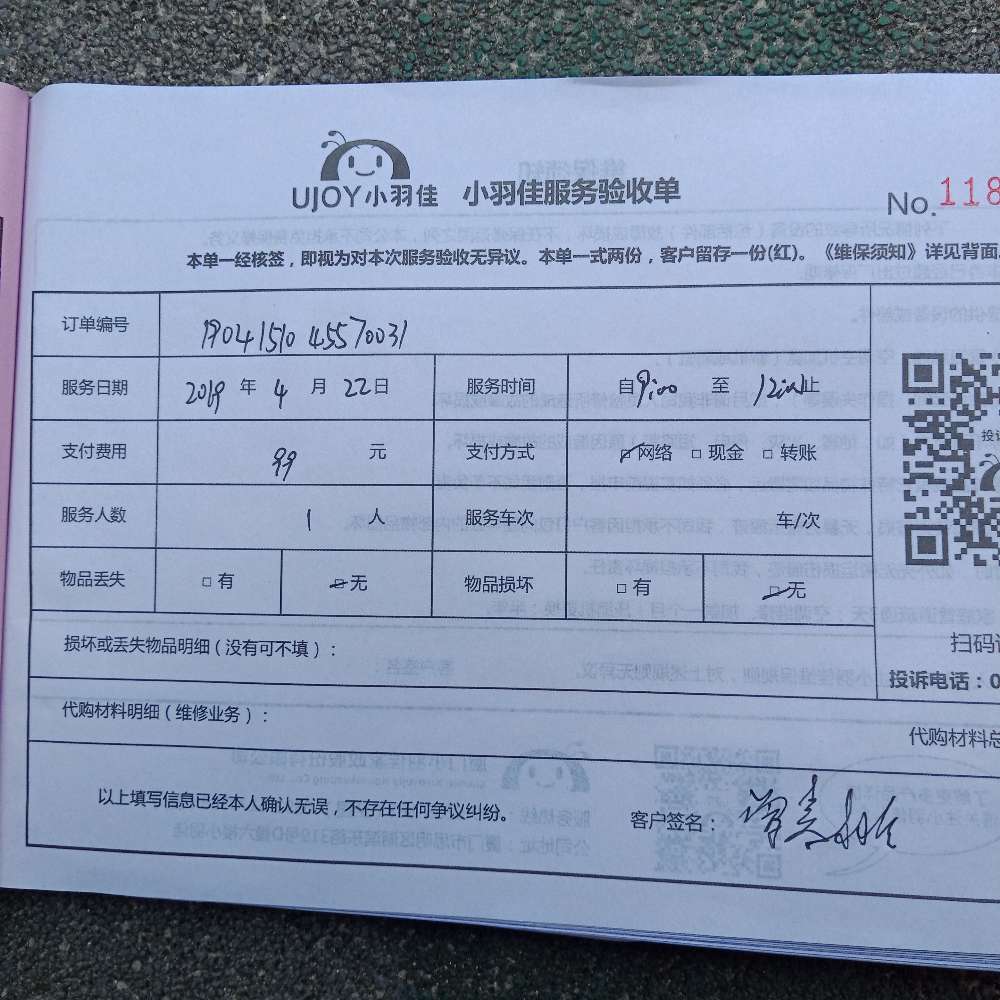 UJOY小羽佳 小羽佳服务验收单
No.118
本单一经核签，即视为对本次服务验收无异议。本单一式两份，客户留存一份(红)。《维保须知》详见背面
订单编号 1904151045570031
服务日期 2019 年 4 月 22 日 服务时间 自 9:00 至 12:00 止
支付费用 99 元 支付方式 □网络 □现金 □转账
服务人数 1 人 服务车次 车/次
物品丢失 □有 □无 物品损坏 □有 □无
损坏或丢失物品明细（没有可不填）：
扫码
投诉电话：0
代购材料明细（维修业务）：
代购材料总
以上填写信息已经本人确认无误，不存在任何争议纠纷。
客户签名：